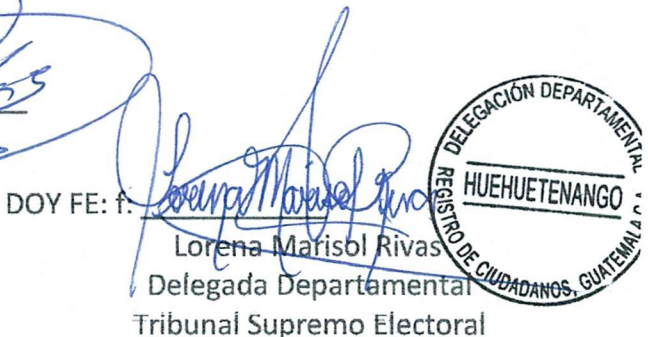 DOY FE: f. Lorena Marisol Rivas
Lorena Marisol Rivas
Delegada Departamental
Tribunal Supremo Electoral
DELEGACIÓN DEPARTAMENTAL
HUEHUETENANGO
REGISTRO DE CIUDADANOS, GUATEMALA C.A.